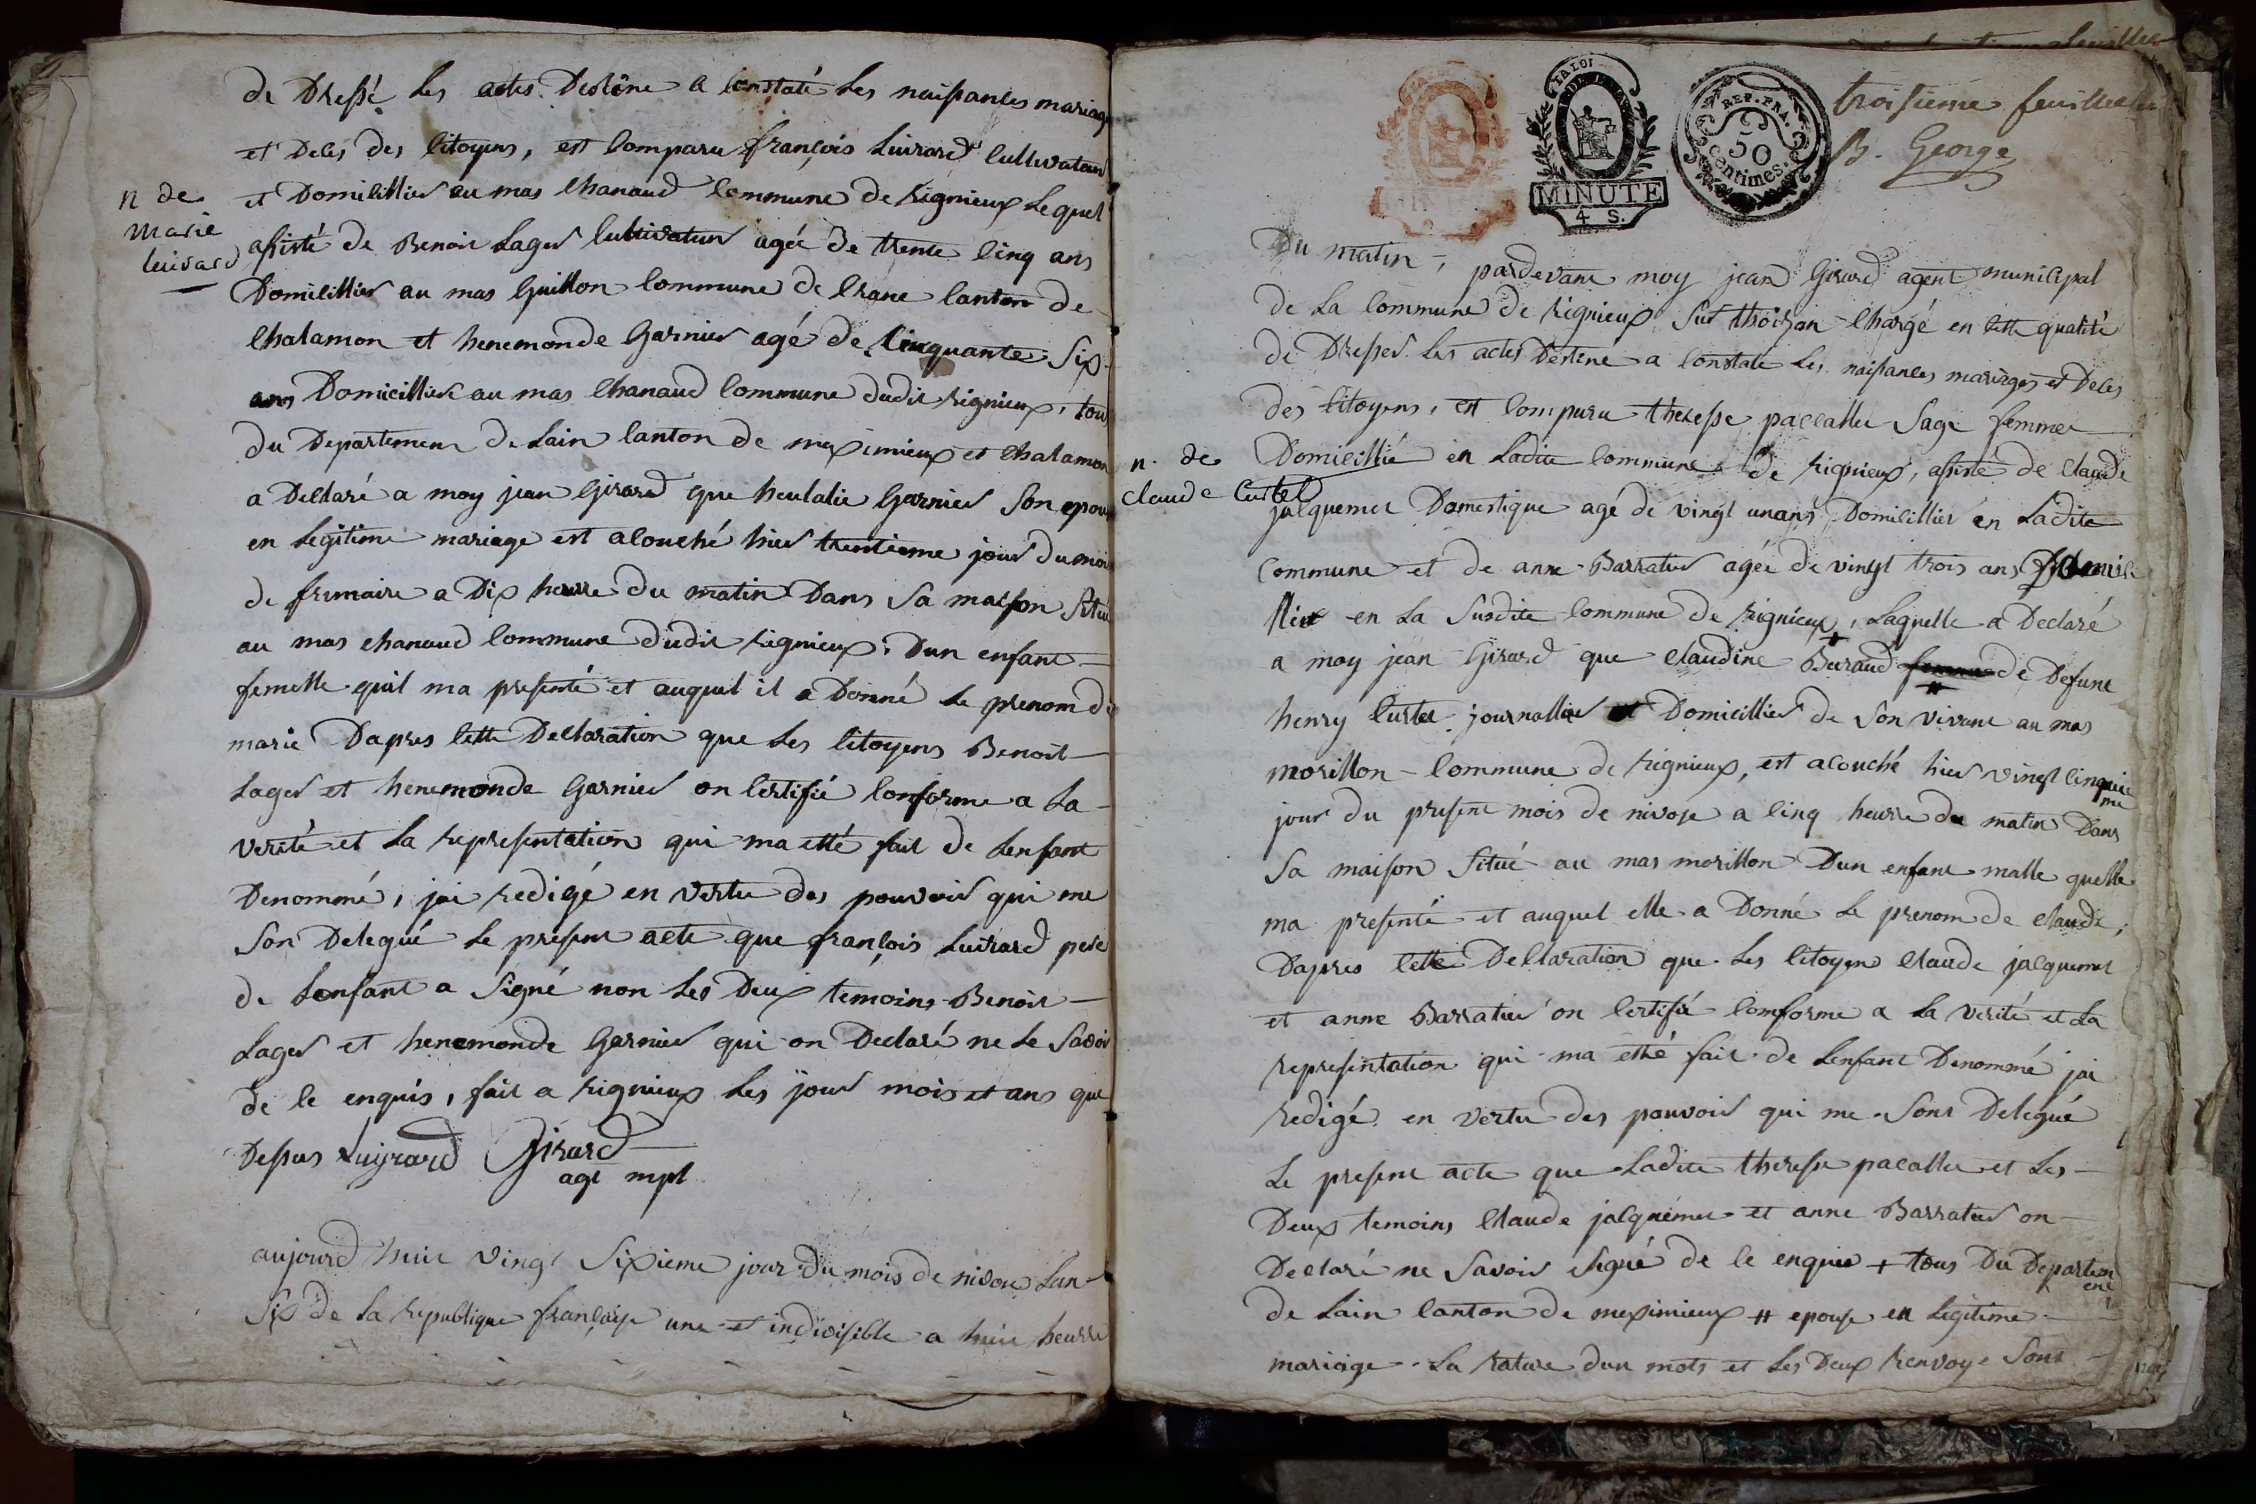 de Dressé les actes Destine a Constaté les naissances mariage
et Deces des Citoyens, est Comparu françois Luirard Cultivateur
et Domicillier au mas Chanaud Commune de Rignieux Le quel
assisté de Benoit Lager Cultivateur agée de trente Cinq ans
Domicillier au mas Guillon Commune de Crane Canton de
Chalamon et henemonde Garnier agé de Cinquante Six
ans Domicillier au mas Chanaud Commune dudit Rignieux, tous
du Departement de Lain Canton de meximieux et Chalamon
a Declaré a moy jean Girard que heulalie Garnier Son epouse
en Legitime mariage est acouché hier trentieme jour du mois
de frimaire a Dix heure du matin Dans Sa maison Situé
au mas Chanaud Commune dudit Rignieux. Dun enfant
femelle quil ma presenté et auquel il a Donné Le prenom de
marie Dapres Cette Declaration que Les Citoyens Benoit
Lager et henemonde Garnier on Certifié Conforme a La
verité et La representation qui ma etté fait de Lenfant
Denommé, jai redigé en vertu des pouvoir qui me
Son Delegué Le present acte que françois Luirard pere
de Lenfant a Signé non Les Deux temoins Benoit
Lager et henemonde Garnier qui on Declaré ne Le Savoir
de Ce enquis, fait a Rignieux Les jour mois et ans que
Dessus Luyrard Girard
agt mpl
n de
Marie
Luirard
aujourd huit vingt Sixieme jour du mois de nivose Lan
Six de La republique française une et indivisible a huit heure
LA LOI
MINUTE
4 S.
REP. FRA.
50
Centimes.
troisieme feuillet
B. George
Du matin, pardevant moy jean Girard agent municipal
de La Commune de Rignieux Sur thoizan Chargé en Cette qualité
de Dresser les actes Destené a Constaté Les naissances mariages et Deces
des Citoyens, est Comparu theresse paccallu Sage femme
n. de
Claude Curtel
Domicillié en Ladite Commune de Rignieux, assisté de Claude
jacquemet Domestique agé de vingt un ans Domicillier en Ladite
Commune et de anne Barratier agée de vingt trois ans Domici
llier en La Susdite Commune de Rignieux, + Laquelle a Declaré
a moy jean Girard que Claudine Buraud femme # de Defunt
henry Curtel journallier et Domicillier de Son vivant au mas
morillon Commune de Rignieux, est acouché hier vingt Cinquie
me
jour du present mois de nivose a Cinq heure du matin Dans
Sa maison Situé au mas morillon Dun enfant malle quelle
ma presenté et auquel elle a Donné Le prenom de Claude,
Dapres Cette Dellaration que Les Citoyen Claude jacquemet
et anne Barratier on Certifié Comforme a La verité et La
representation qui ma etté fait de Lenfant Denommé jai
redigé en vertu des pouvoir qui me Sont Delegué
Le present acte que Ladite theresse pacallu et Les
Deux temoins Claude jacquemet et anne Barratier on
Declaré ne Savoir Signé de Ce enquis + tous Du Departem
ent
de Lain Canton de meximieux # epouse en Legitime
mariage. La rature dun mots et Les Deux renvoye Sont